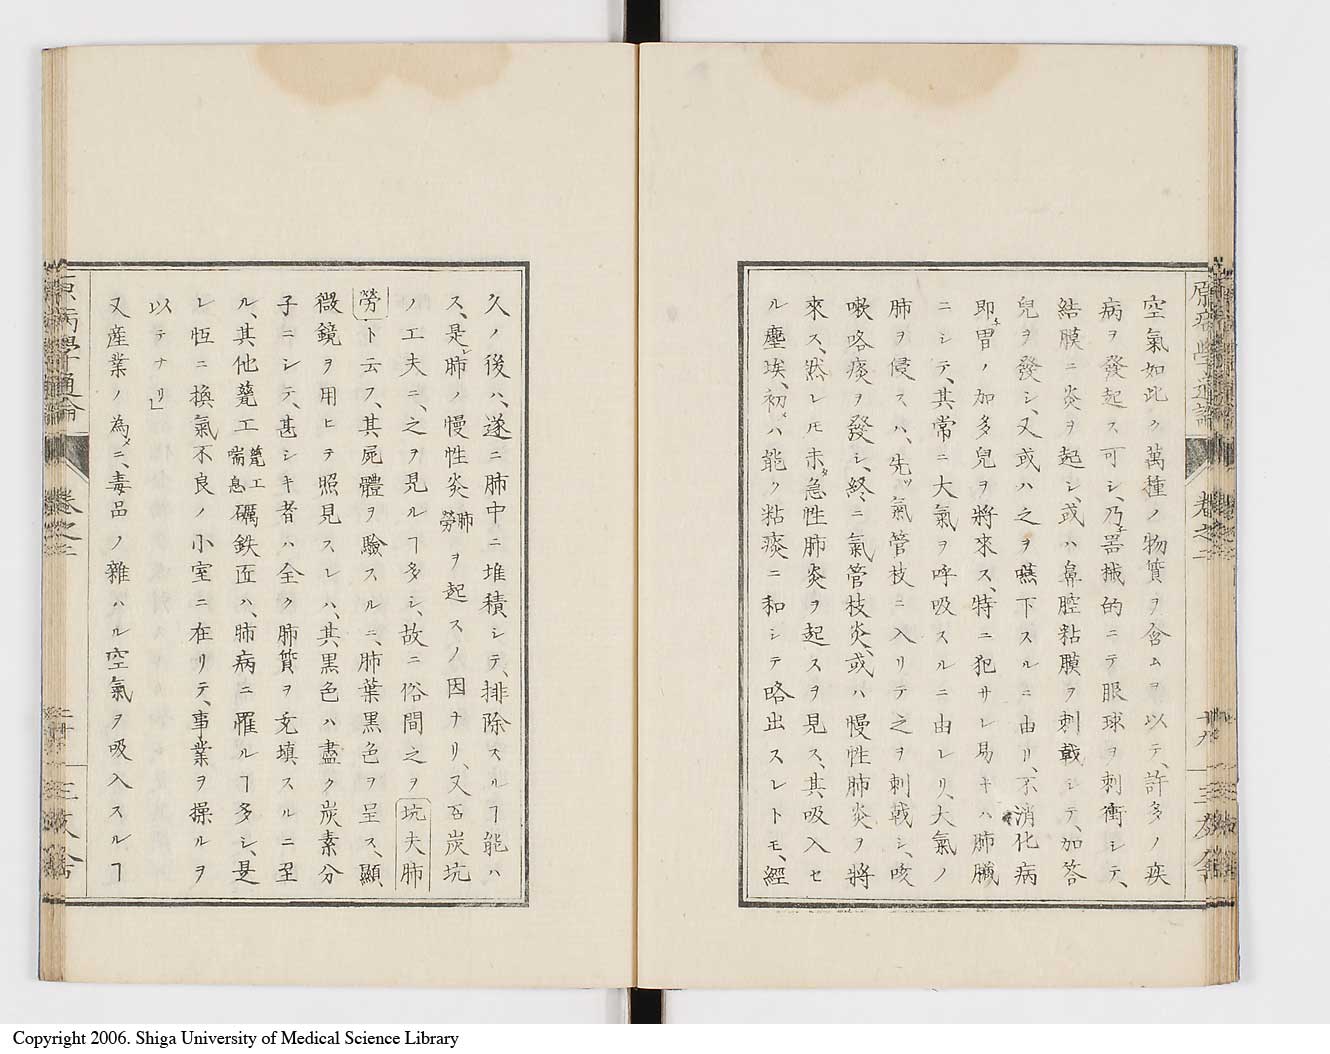 空氣如此ク萬種ノ物質ヲ含ムヲ以テ、許多ノ疾
病ヲ發起ス可シ、乃チ器械的ニテ眼球ヲ刺衝シテ、
結膜ニ炎ヲ起シ、或ハ鼻腔粘膜ヲ刺戟シテ、加答
兒ヲ發シ、又或ハ之ヲ嚥下スルニ由リ、不消化病
即チ胃ノ加多兒ヲ將來ス、特ニ犯サレ易キハ肺臓
ニシテ、其常ニ大氣ヲ呼吸スルニ由レリ、大氣ノ
肺ヲ侵スハ、先ツ氣管枝ニ入リテ之ヲ刺戟シ、咳
嗽咯痰ヲ發シ、終ニ氣管枝炎、或ハ慢性肺炎ヲ將
來ス、然レモ未タ急性肺炎ヲ起スヲ見ス、其吸入セ
ル塵埃、初メハ能ク粘痰ニ和シテ咯出スレトモ、經
原病學通論
卷之二
十九
三友舍
久ノ後ハ、遂ニ肺中ニ堆積シテ、排除スルヿ能ハ
ス、是レ肺ノ慢性炎肺勞ヲ起スノ因ナリ、又石炭坑
ノ工夫ニ、之ヲ見ルヿ多シ、故ニ俗間之ヲ坑夫肺
勞ト云フ、其屍體ヲ驗スルニ、肺葉黒色ヲ呈ス、顯
微鏡ヲ用ヒテ照見スレハ、其黒色ハ盡ク炭素分
子ニシテ、甚シキ者ハ全ク肺質ヲ充填スルニ至
ル、其他甃工甃工喘息礪鉄匠ハ、肺病ニ罹ルヿ多シ、是
レ恒ニ換氣不良ノ小室ニ在リテ、事業ヲ操ルヲ
以テナリ」
又産業ノ為メニ、毒品ノ雜ハル空氣ヲ吸入スルヿ
原病學通論
卷之二
二十
三友舍
Copyright 2006. Shiga University of Medical Science Library